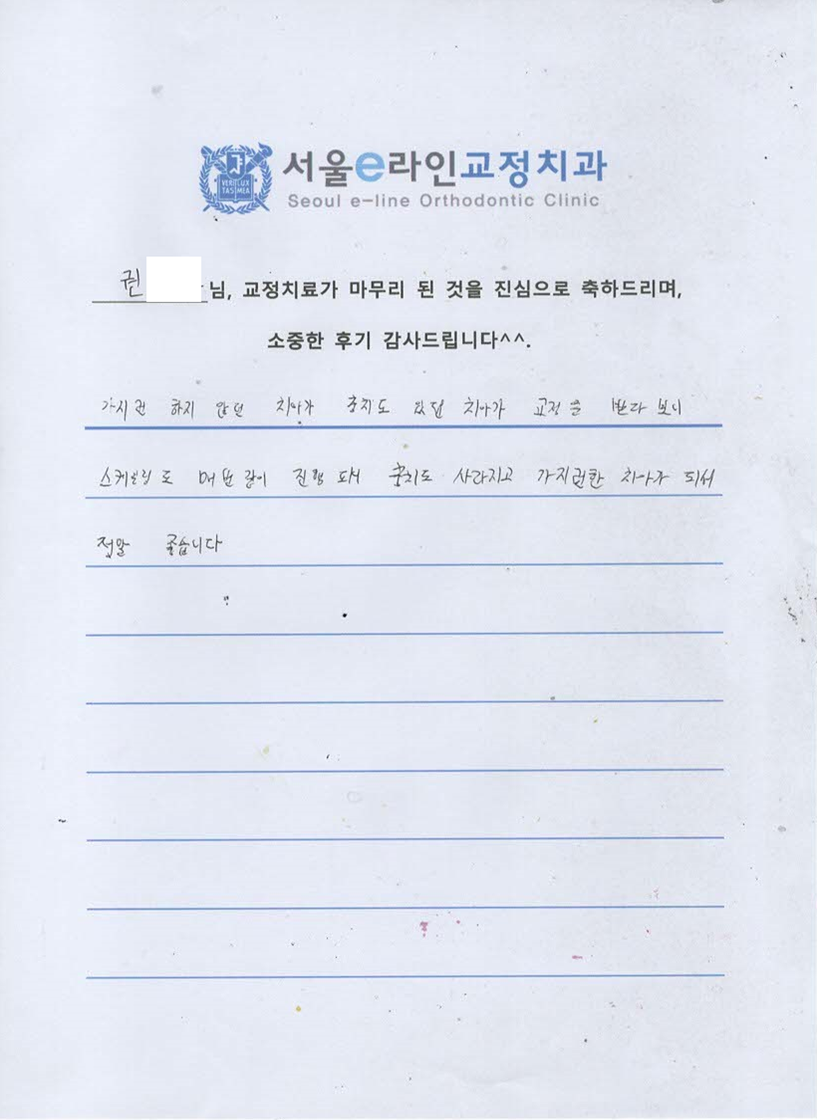 VERI LUX
TAS MEA
서울e라인교정치과
Seoul e-line Orthodontic Clinic
권 님, 교정치료가 마무리 된 것을 진심으로 축하드리며,
소중한 후기 감사드립니다^^.
가지런 하지 않던 치아가 충치도 있던 치아가 교정을 받다 보니
스케일링도 매번 같이 진행 되서 충치도 사라지고 가지런한 치아가 되서
정말 좋습니다